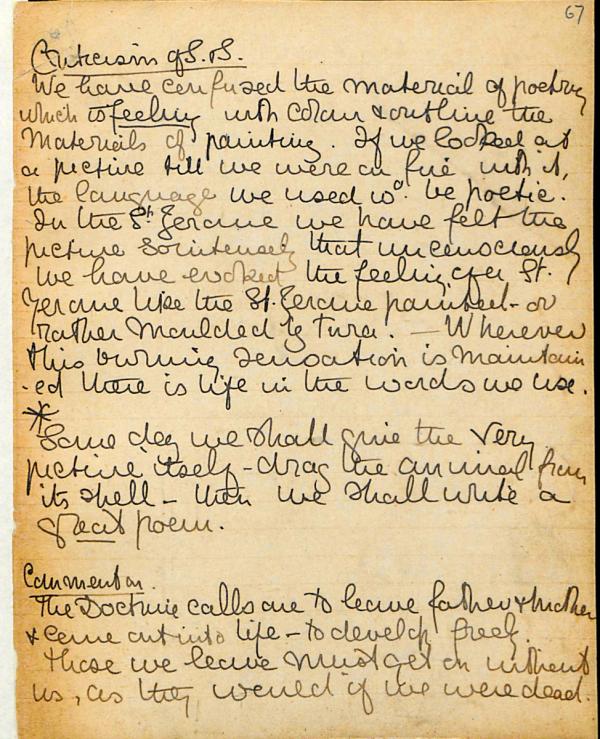 67
Criticism of S. & S.
We have confused the material of poetry
which is feeling with colour & outline the
Materials of painting. If we looked at
a picture till we were on fire with it,
the language we used wd. be poetic.
In the St. Jerome we have felt the
picture so intensely that unconsciously
we have evoked the feeling of a St.
Jerome like the St. Jerome painted - or
rather moulded by Tura. — Wherever
this burning sensation is maintain
-ed there is life in the words we use.
*
Some day we shall give the very
picture itself - drag the animal from
its shell - then we shall write a
great poem.
Comment on.
The Doctrine calls one to leave father & mother
& come out into life - to develop freely.
Those we leave must get on without
us, as they would if we were dead.